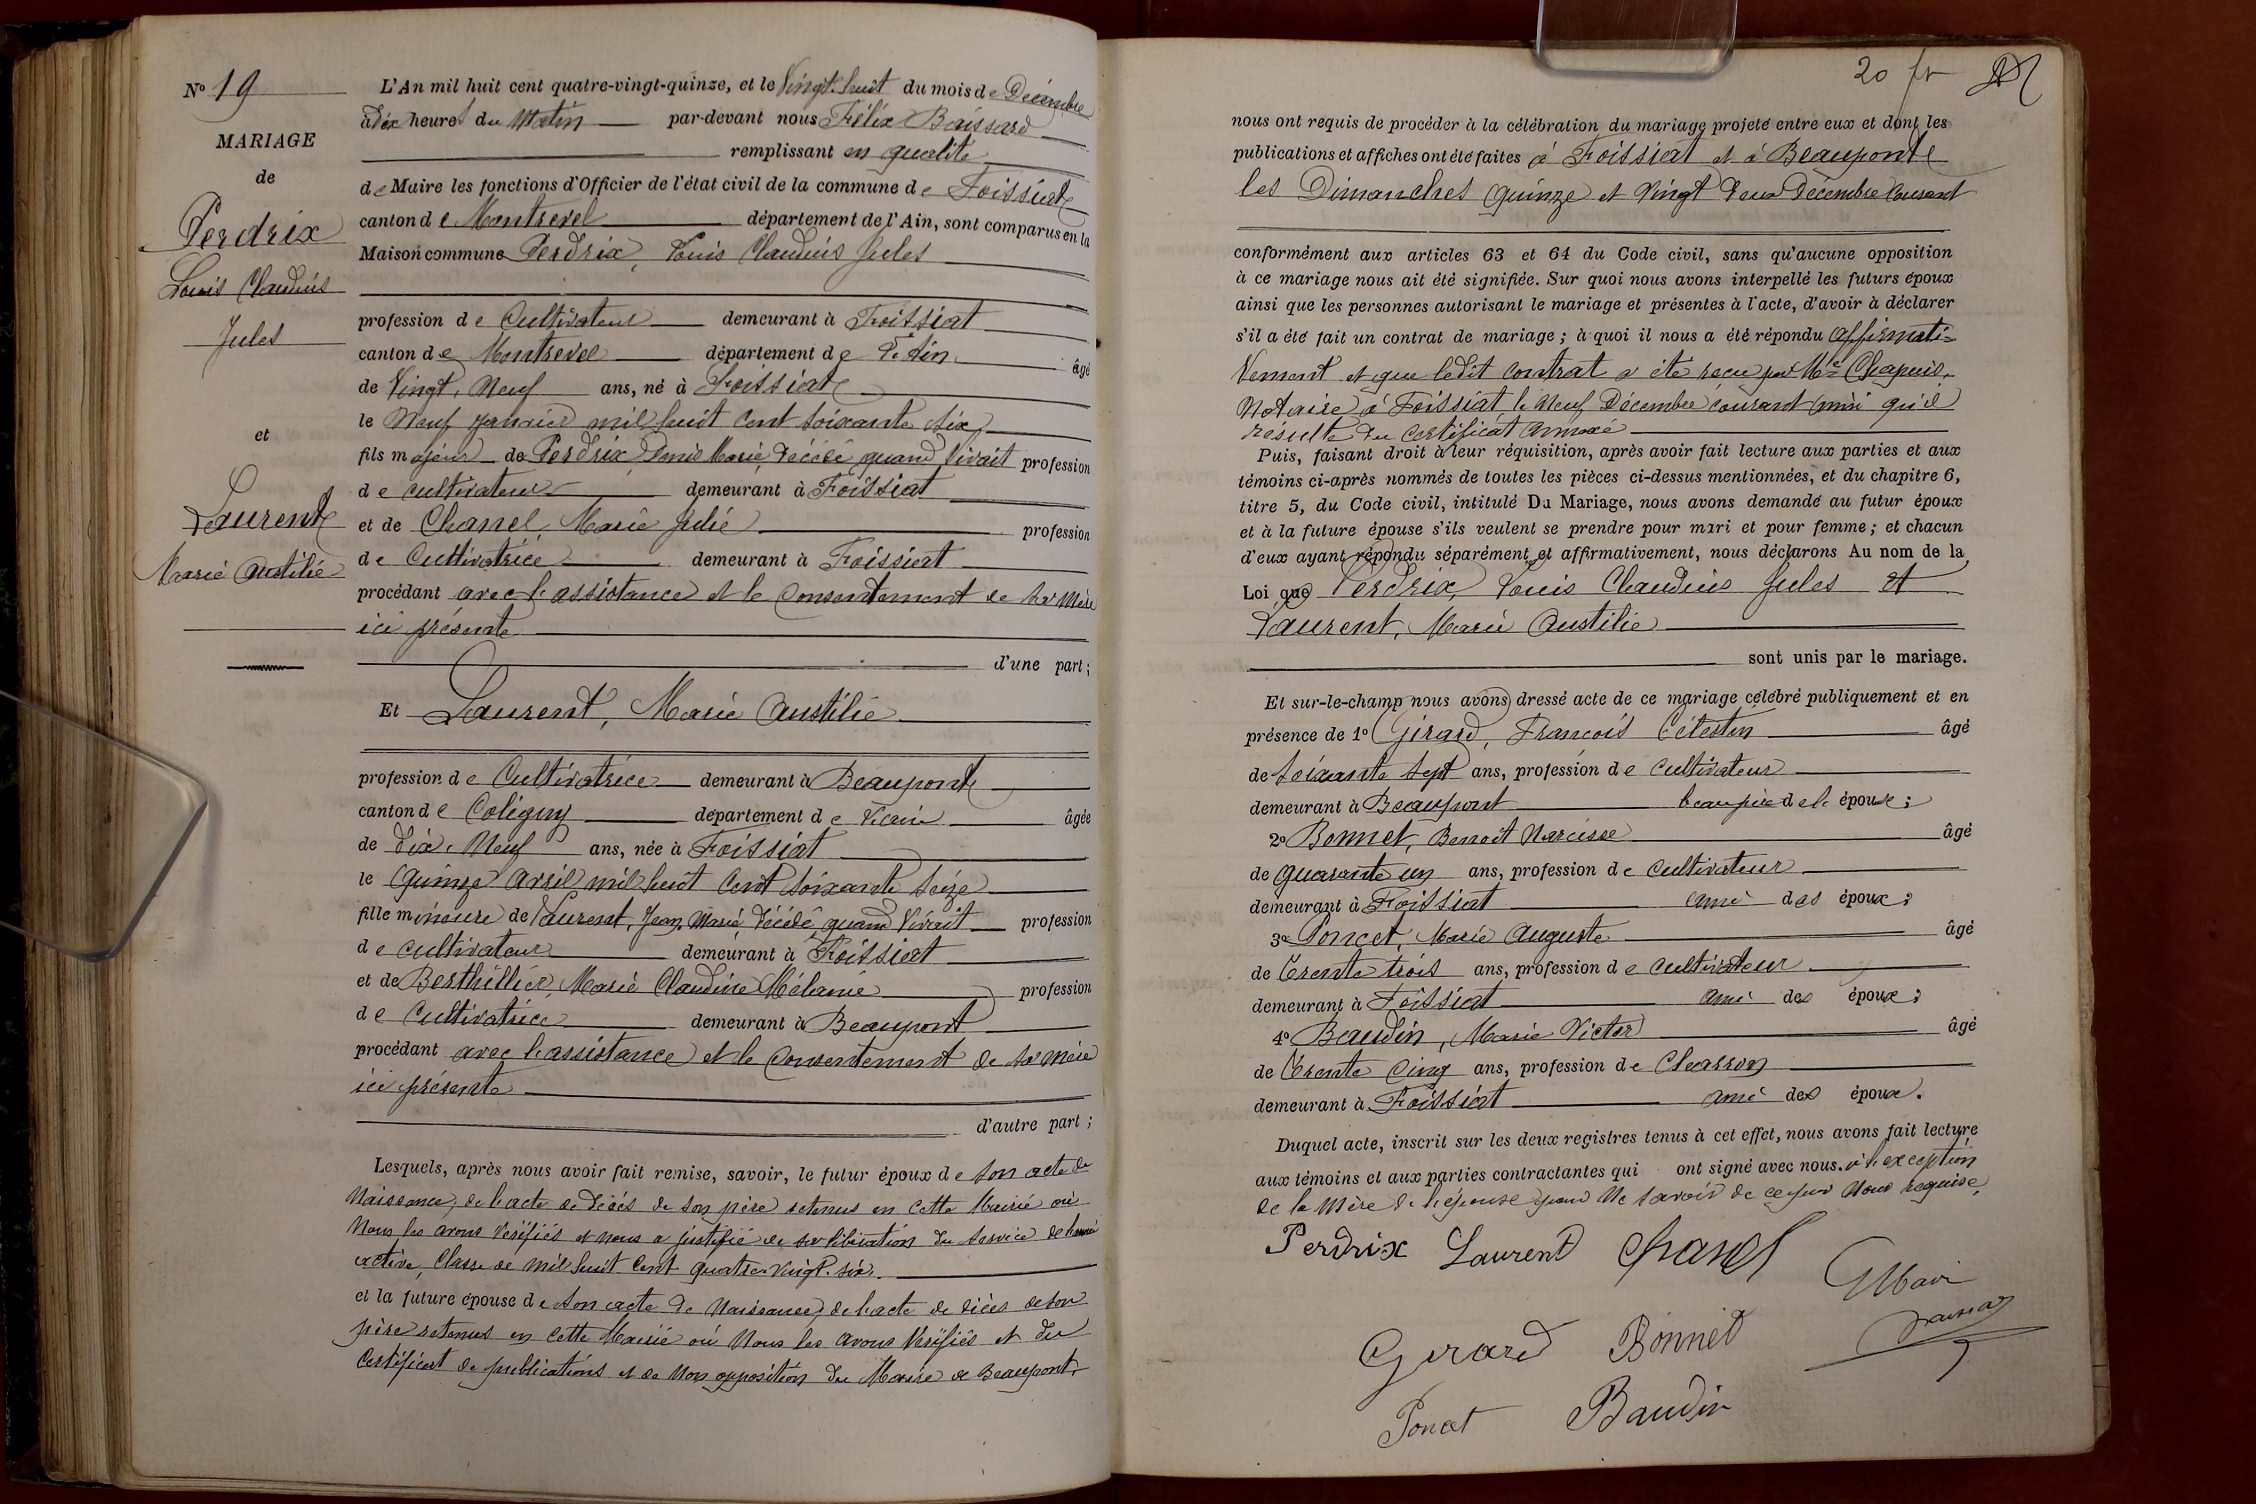 Nº 19
MARIAGE
de
Perdrix
Louis Claudius
Jules
et
Laurent
Marie Austilie
L'An mil huit cent quatre-vingt-quinze, et le Vingt-huit du mois de Décembre
à Dix heures du Matin par-devant nous Félix Baissard
remplissant en qualité
de Maire les fonctions d'Officier de l'état civil de la commune de Foissiat
canton de Montrevel département de l'Ain, sont comparus en la
Maison commune Perdrix, Louis Claudius Jules
profession de Cultivateur demeurant à Foissiat
canton de Montrevel département de l'Ain âgé
de Vingt-Neuf ans, né à Foissiat
le Neuf janvier mil huit cent soixante six
fils majeur de Perdrix Denis Marie, décédé quand vivait profession
de cultivateur demeurant à Foissiat
et de Chanel, Marie Julie profession
de Cultivatrice demeurant à Foissiat
procédant avec l'assistance et le Consentement de sa Mère
ici présente
d'une part;
Et Laurent, Marie Austilie
profession de Cultivatrice demeurant à Beaupont
canton de Coligny département de l'Ain âgée
de Dix-Neuf ans, née à Foissiat
le Quinze Avril mil huit Cent soixante seize
fille mineure de Laurent, Jean Marie, décédé quand Vivait profession
de cultivateur demeurant à Foissiat
et de Berthillier, Marie Claudine Mélanie profession
de Cultivatrice demeurant à Beaupont
procédant avec l'assistance et le Consentement de sa mère
ici présente
d'autre part;
Lesquels, après nous avoir fait remise, savoir, le futur époux de son acte de
Naissance, de l'acte de décès de son père retenus en cette Mairie où
Nous les avons Vérifiés et nous a justifié de sa libération du service de l'armée
active, Classe de mil huit Cent quatre-vingt-six.
et la future épouse de son acte de Naissance, de l'acte de décès de son
père retenus en cette Mairie où Nous les avons Vérifiés et du
Certificat de publications et de Non opposition du Maire de Beaupont.
20 fr
nous ont requis de procéder à la célébration du mariage projeté entre eux et dont les
publications et affiches ont été faites à Foissiat et à Beaupont
les Dimanches Quinze et Vingt deux Décembre Courant
conformément aux articles 63 et 64 du Code civil, sans qu'aucune opposition
à ce mariage nous ait été signifiée. Sur quoi nous avons interpellé les futurs époux
ainsi que les personnes autorisant le mariage et présentes à l'acte, d'avoir à déclarer
s'il a été fait un contrat de mariage; à quoi il nous a été répondu affirmati-
Vement et que ledit Contrat a été reçu par Me Chapuis,
Notaire à Foissiat, le Neuf Décembre courant ainsi qu'il
résulte du Certificat annexé
Puis, faisant droit à leur réquisition, après avoir fait lecture aux parties et aux
témoins ci-après nommés de toutes les pièces ci-dessus mentionnées, et du chapitre 6,
titre 5, du Code civil, intitulé Du Mariage, nous avons demandé au futur époux
et à la future épouse s'ils veulent se prendre pour mari et pour femme; et chacun
d'eux ayant répondu séparément et affirmativement, nous déclarons Au nom de la
Loi que Perdrix, Louis Claudius Jules et
Laurent, Marie Austilie
sont unis par le mariage.
Et sur-le-champ nous avons dressé acte de ce mariage célébré publiquement et en
présence de 1º Girard, François Célestin âgé
de soixante sept ans, profession de cultivateur
demeurant à Beaupont beau père de l'épouse;
2º Bonnet, Benoit Narcisse âgé
de quarante un ans, profession de cultivateur
demeurant à Foissiat ami des époux;
3º Poncet, Marie Auguste âgé
de Trente trois ans, profession de cultivateur
demeurant à Foissiat ami des époux;
4º Baudin, Marie Victor âgé
de Trente Cinq ans, profession de Charron
demeurant à Foissiat ami des époux.
Duquel acte, inscrit sur les deux registres tenus à cet effet, nous avons fait lecture
aux témoins et aux parties contractantes qui ont signé avec nous. à l'exception
de la Mère de l'épouse pour Ne savoir de ce par Nous requise.
Perdrix Laurent Chanel
Girard Bonnet
Poncet Baudin